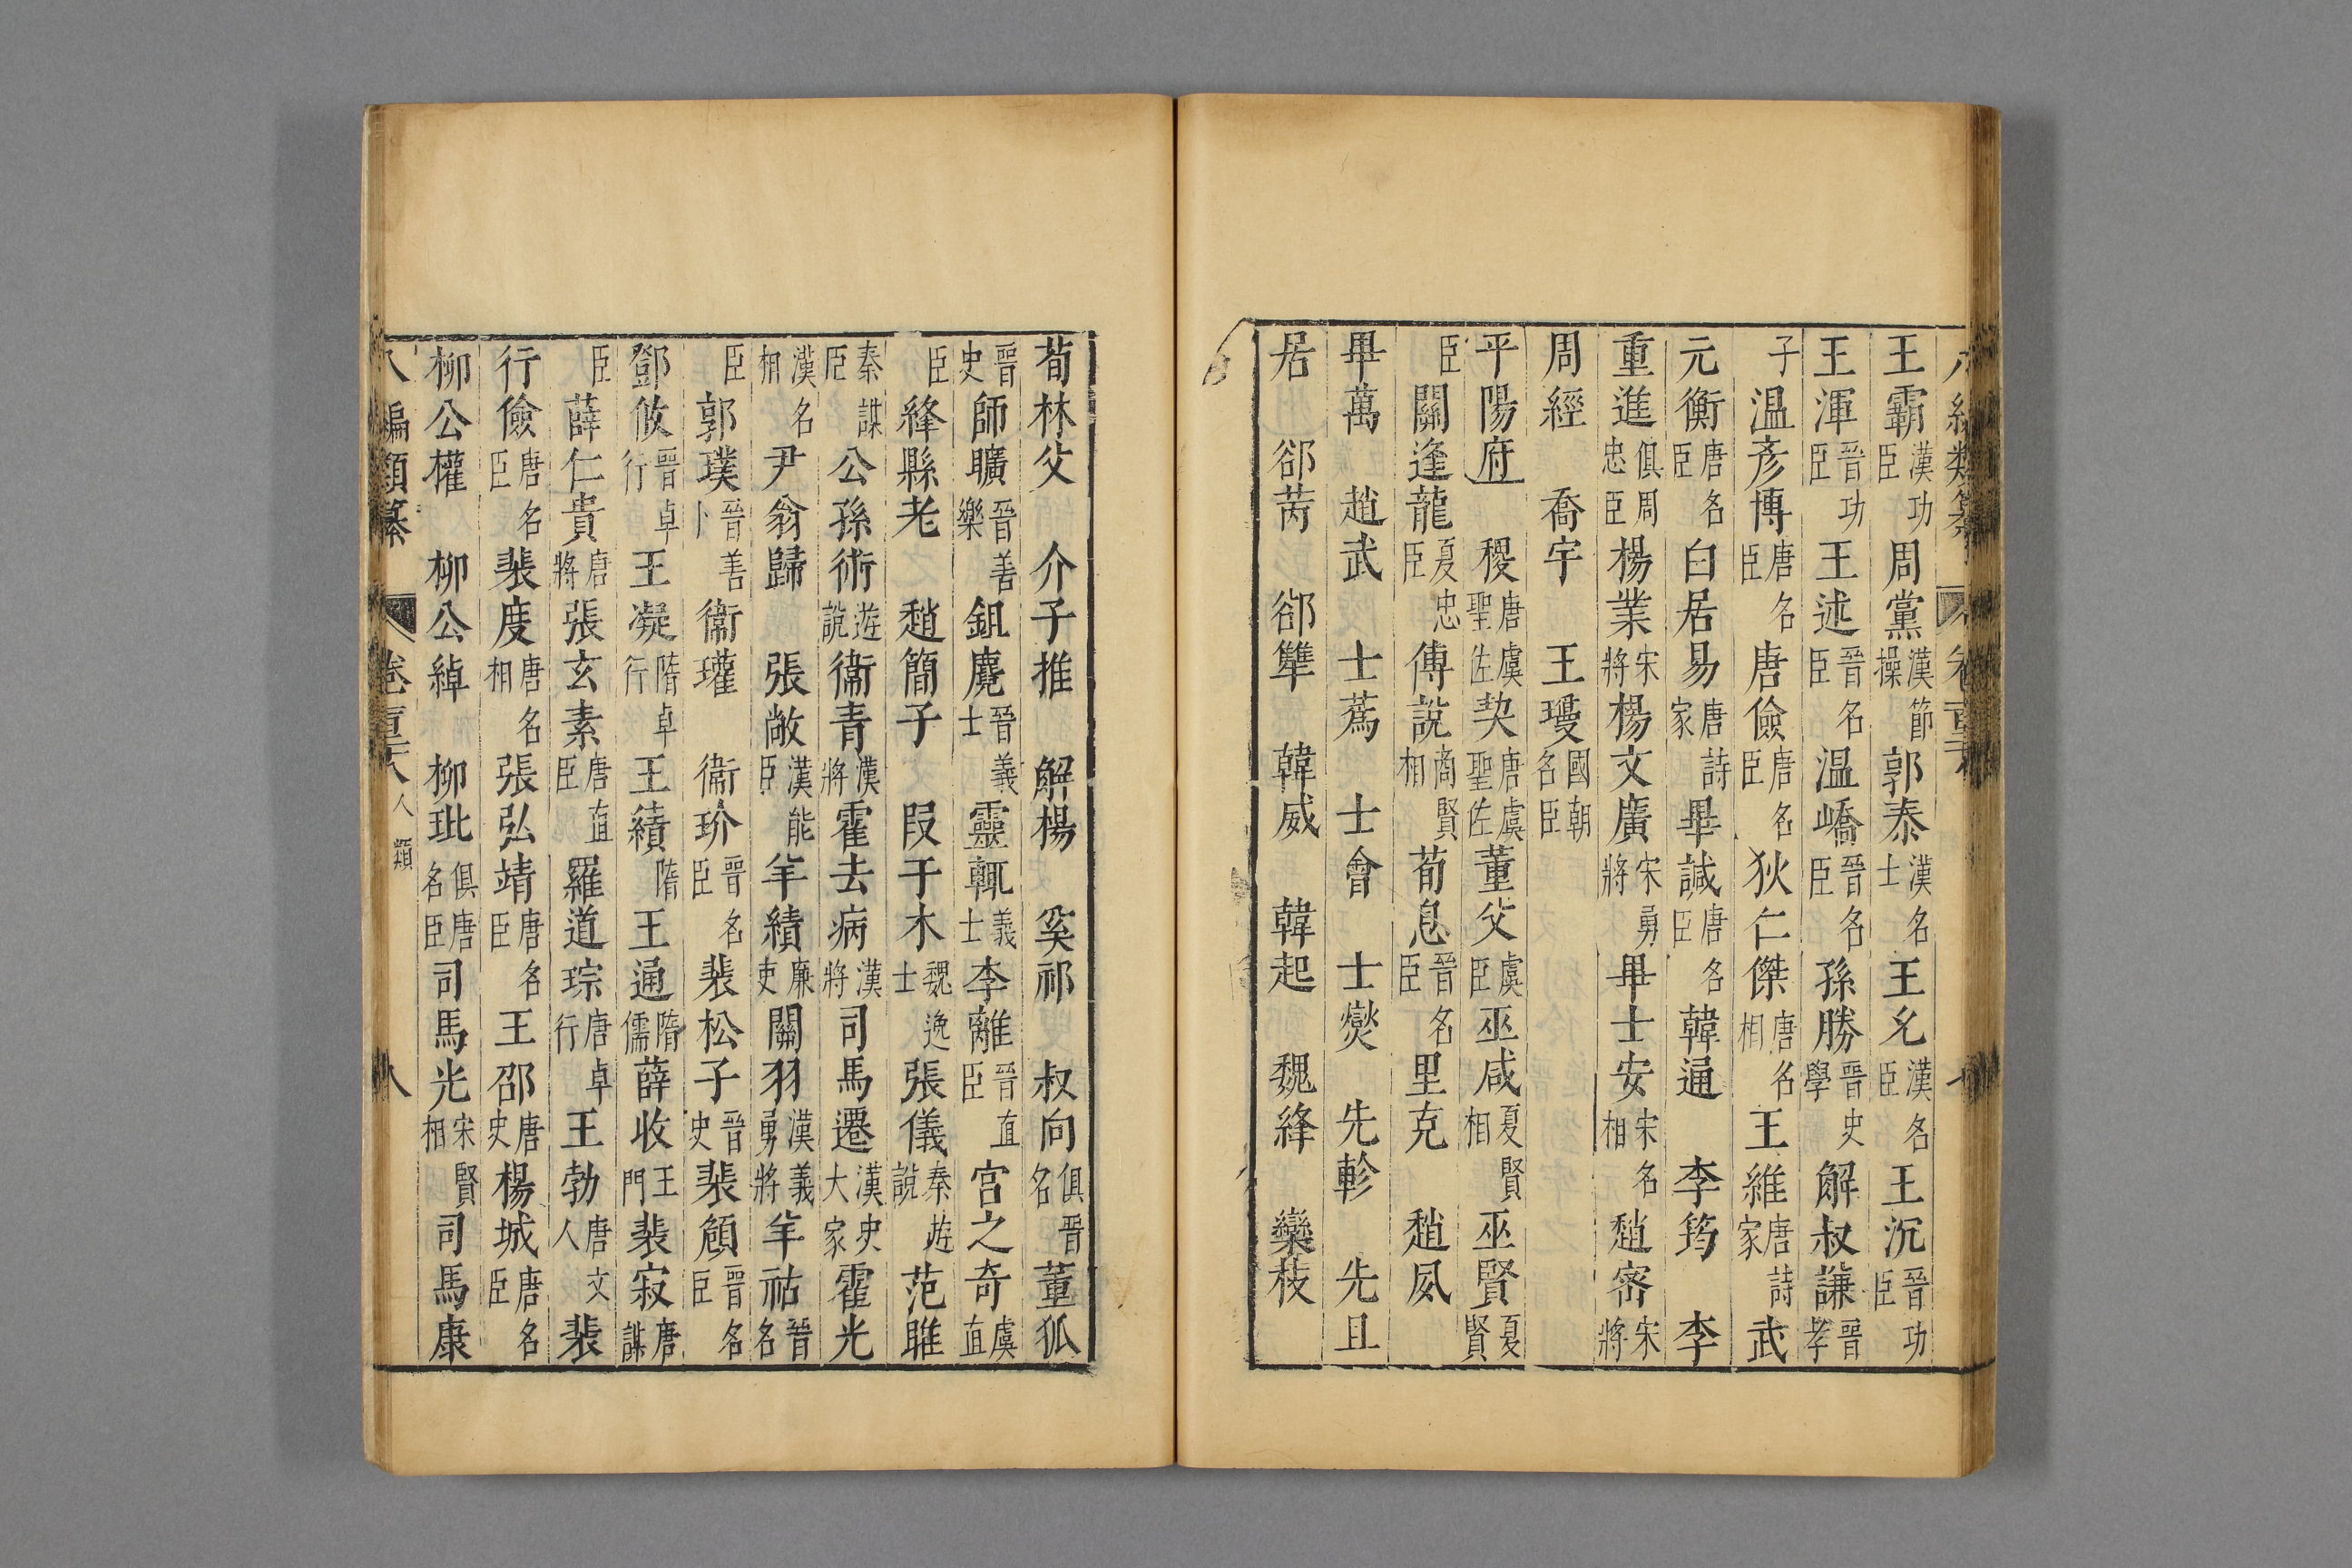 王霸漢功臣周黨漢節操郭泰漢名士王允漢名臣王沉晉功臣
王渾晉功臣王述晉名臣温嶠晉名臣孫勝晉史學解叔謙晉孝
子温彥博唐名臣唐儉唐名臣狄仁傑唐名相王維唐詩家武
元衡唐名臣白居易唐詩家畢諴唐名臣韓通 李筠 李
重進俱周忠臣楊業宋將楊文廣宋勇將畢士安宋名相趙密宋將
周經 喬宇 王瓊國朝名臣
平陽府 稷唐虞聖佐契唐虞聖佐董父虞臣巫咸夏賢相巫賢夏賢
臣關逢龍夏忠臣傅說商賢相荀息晉名臣里克 趙夙
畢萬 趙武 士蔿 士會 士燮 先軫 先且
居 郤芮 郤犨 韓威 韓起 魏絳 欒枝
荀林父 介子推 解楊 奚祁 叔向俱晉名董狐
晉史師曠晉善樂鉏麑晉義士靈輒義士李離晉直臣宫之奇虞直
臣絳縣老 趙簡子 段干木魏逸士張儀秦遊說范雎
秦謀臣公孫術遊說衞青漢將霍去病漢將司馬遷漢史大家霍光
漢名相尹翁歸 張敞漢能臣羊續廉吏關羽漢義勇將羊祜晉名
臣郭璞晉善卜衞瓘 衞玠晉名臣裴松子晉史裴頠晉名臣
鄧攸晉卓行王凝隋卓行王績隋王通隋儒薛收王門裴寂唐謀
臣薛仁貴唐將張玄素唐直臣羅道琮唐卓行王勃唐文人裴
行儉唐名臣裴度唐名相張弘靖唐名臣王邵唐史楊城唐名臣
柳公權 柳公綽 柳玭俱唐名臣司馬光宋賢相司馬康
八編類纂 卷 人類 八